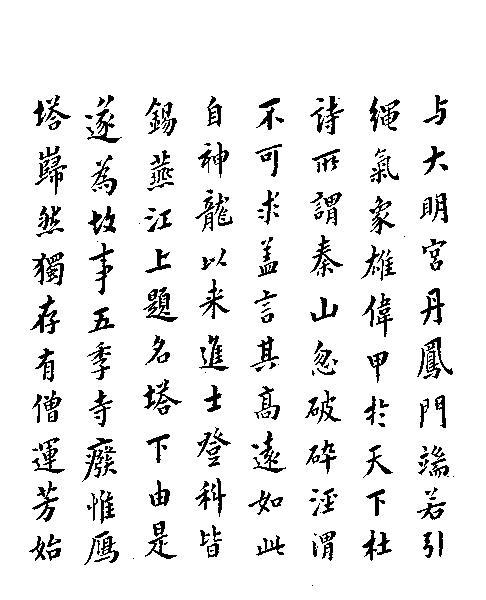 与大明宮丹鳳門端若引
繩氣象雄偉甲於天下杜
詩所謂秦山忽破碎涇渭
不可求盖言其高遠如此
自神龍以来進士登科皆
錫燕江上題名塔下由是
遂為故事五季寺廢惟雁
塔巋然獨存有僧蓮芳始